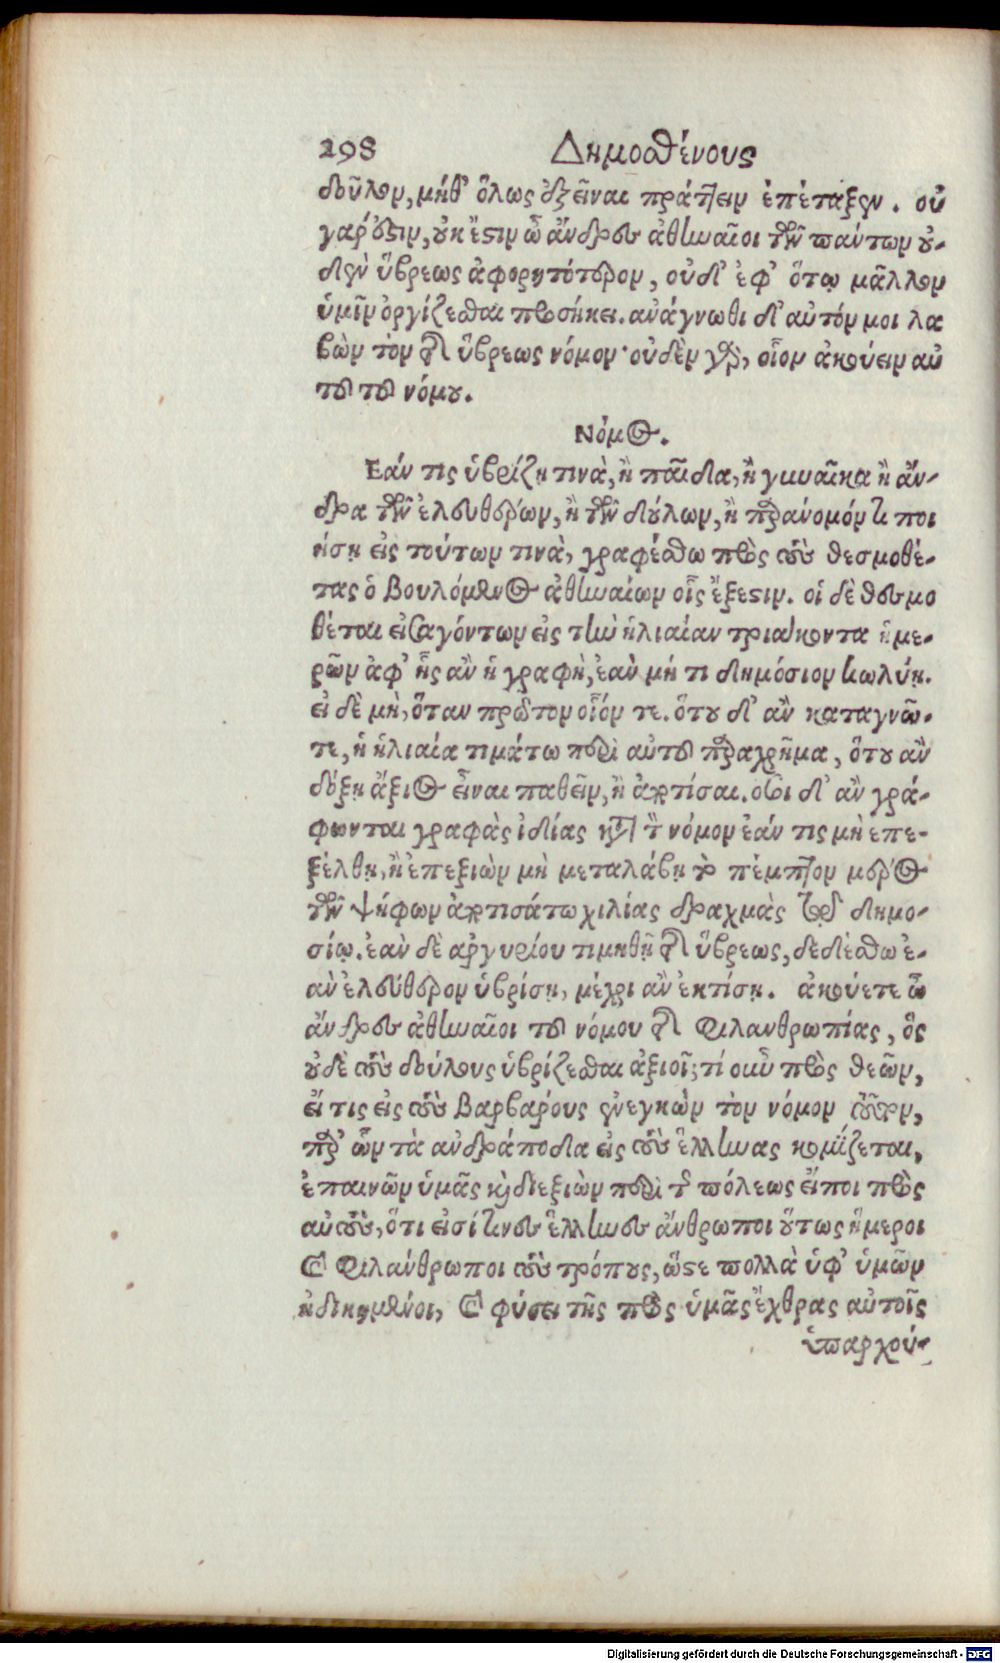 298 Δημοσθένους
δοῦλον, μήθ' ὅλως ἐξεῖναι πράττειν ἐπέταξεν. οὐ
γάρ ἐστιν, οὐκ ἔστιν ὦ ἄνδρες ἀθηναῖοι τῶν πάντων οὐ-
δὲν ὕβρεως ἀφορητότερον, οὐδ' ἐφ' ὅτῳ μᾶλλον
ὑμῖν ὀργίζεσθαι προσήκει. ἀνάγνωθι δ' αὐτόν μοι λα
βὼν τὸν τῆς ὕβρεως νόμον· οὐδὲν γὰρ, οἷον ἀκούειν αὐ
τοῦ τοῦ νόμου.
Νόμος.
Εάν τις ὑβρίζῃ τινὰ, ἢ παῖδα, ἢ γυναῖκα ἢ ἄν-
δρα τῶν ἐλευθέρων, ἢ τῶν δούλων, ἢ παράνομόν τι ποι
ήσῃ εἰς τούτων τινὰ, γραφέσθω πρὸς τοὺς θεσμοθέ-
τας ὁ βουλόμενος ἀθηναίων οἷς ἔξεστιν. οἱ δὲ θεσμο
θέται εἰσαγόντων εἰς τὴν ἡλιαίαν τριάκοντα ἡμε-
ρῶν ἀφ' ἧς ἂν ἡ γραφὴ, ἐὰν μή τι δημόσιον κωλύῃ.
εἰ δὲ μὴ, ὅταν πρῶτον οἷόν τε. ὅτου δ' ἂν καταγνῶ-
τε, ἡ ἡλιαία τιμάτω περὶ αὐτοῦ παραχρῆμα, ὅτου ἂν
δόξῃ ἄξιος εἶναι παθεῖν, ἢ ἀποτίσαι. ὅσοι δ' ἂν γρά-
φωνται γραφὰς ἰδίας κατὰ τὸν νόμον ἐάν τις μὴ ἐπε-
ξέλθῃ, ἢ ἐπεξιὼν μὴ μεταλάβῃ τὸ πέμπτον μέρος
τῶν ψήφων ἀποτισάτω χιλίας δραχμὰς τῷ δημο-
σίῳ. ἐὰν δὲ ἀργυρίου τιμηθῇ τῆς ὕβρεως, δεδέσθω ἐ-
ὰν ἐλεύθερον ὑβρίσῃ, μέχρι ἂν ἐκτίσῃ. ἀκούετε ὦ
ἄνδρες ἀθηναῖοι τοῦ νόμου τῆς φιλανθρωπίας, ὃς
οὐδὲ τοὺς δούλους ὑβρίζεσθαι ἀξιοῖ; τί οὖν πρὸς θεῶν,
εἴ τις εἰς τοὺς βαρβάρους ἐνεγκὼν τὸν νόμον τοῦτον,
παρ' ὧν τὰ ἀνδράποδα εἰς τοὺς ἕλληνας κομίζεται,
ἐπαινῶν ὑμᾶς καὶ διεξιὼν περὶ τῆς πόλεως εἴποι πρὸς
αὐτοὺς, ὅτι εἰσί τινες ἕλληνες ἄνθρωποι οὕτως ἥμεροι
καὶ φιλάνθρωποι τοὺς τρόπους, ὥστε πολλὰ ὑφ' ὑμῶν
ἠδικημένοι, καὶ φύσει τῆς πρὸς ὑμᾶς ἔχθρας αὐτοῖς
ὑπαρχού-
Digitalisierung gefördert durch die Deutsche Forschungsgemeinschaft - DFG